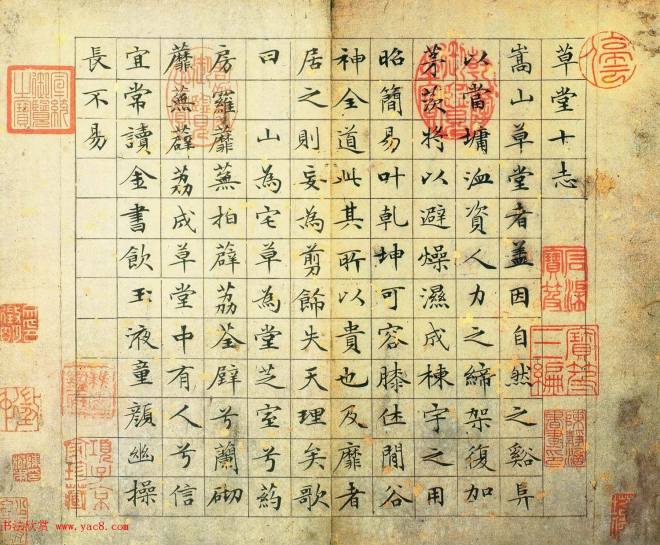 草堂十志
嵩山草堂者盖因自然之谿阜
以當墉洫資人力之締架復加
茅茨将以避燥濕成棟宇之用
昭簡易叶乾坤可容膝休閒谷
神全道此其所以貴也及靡者
居之則妄為剪飾失天理矣歌
曰 山為宅草為堂芝室兮葯
房羅蘼蕪拍薜荔荃壁兮蘭砌
蘼蕪薜荔成草堂中有人兮信
宜常讀金書飲玉液童顏幽操
長不易
石渠寶笈
寶笈三編
宣統御覽之寶
項子京家珍藏
书法欣赏
www.yac8.com